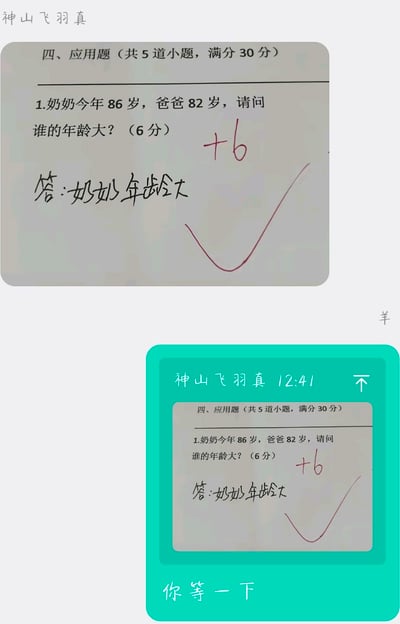 神山飞羽真
四、应用题（共 5 道小题，满分 30 分）
1.奶奶今年 86 岁，爸爸 82 岁，请问
谁的年龄大？（6 分）
+6
答:奶奶年龄大
羊
神山飞羽真 12:41
四、应用题（共 5 道小题，满分 30 分）
1.奶奶今年 86 岁，爸爸 82 岁，请问
谁的年龄大？（6 分）
+6
答:奶奶年龄大
你等一下